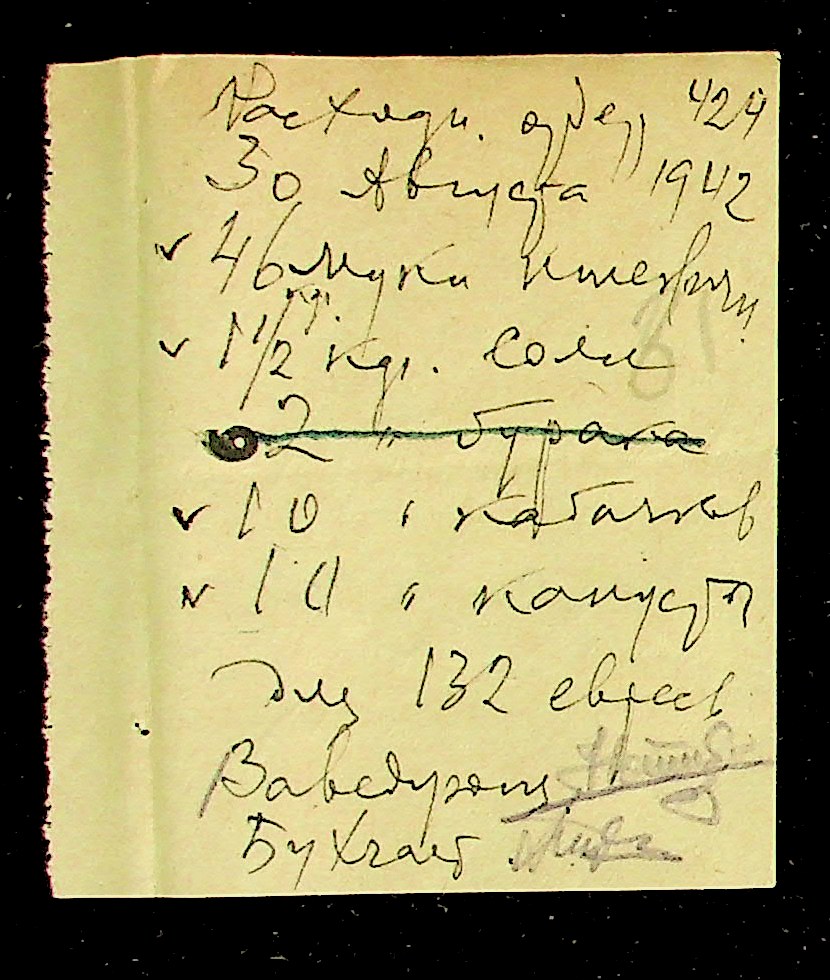 Расходн. ордер 424
30 Августа 1942
46 муки пшеничн.
1 1/2 кгр. Соли
2 " бурака
10 " кабачков
10 " капусты
для 132 евреев
Заведующий
Бухгалт.